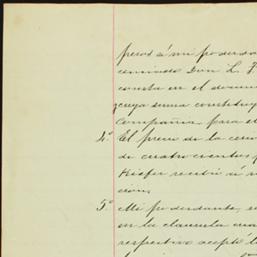 perod á mi poderda
cominado Don L. F.
consta en el docum
cuya suma constituy
Compañia. para el
4.º El precio de la cesi
de cuatrocientos p
Kiefer recibió á s
cion.
5.º Mi poderdante, se
en la clausula cua
respectivo aceptó l